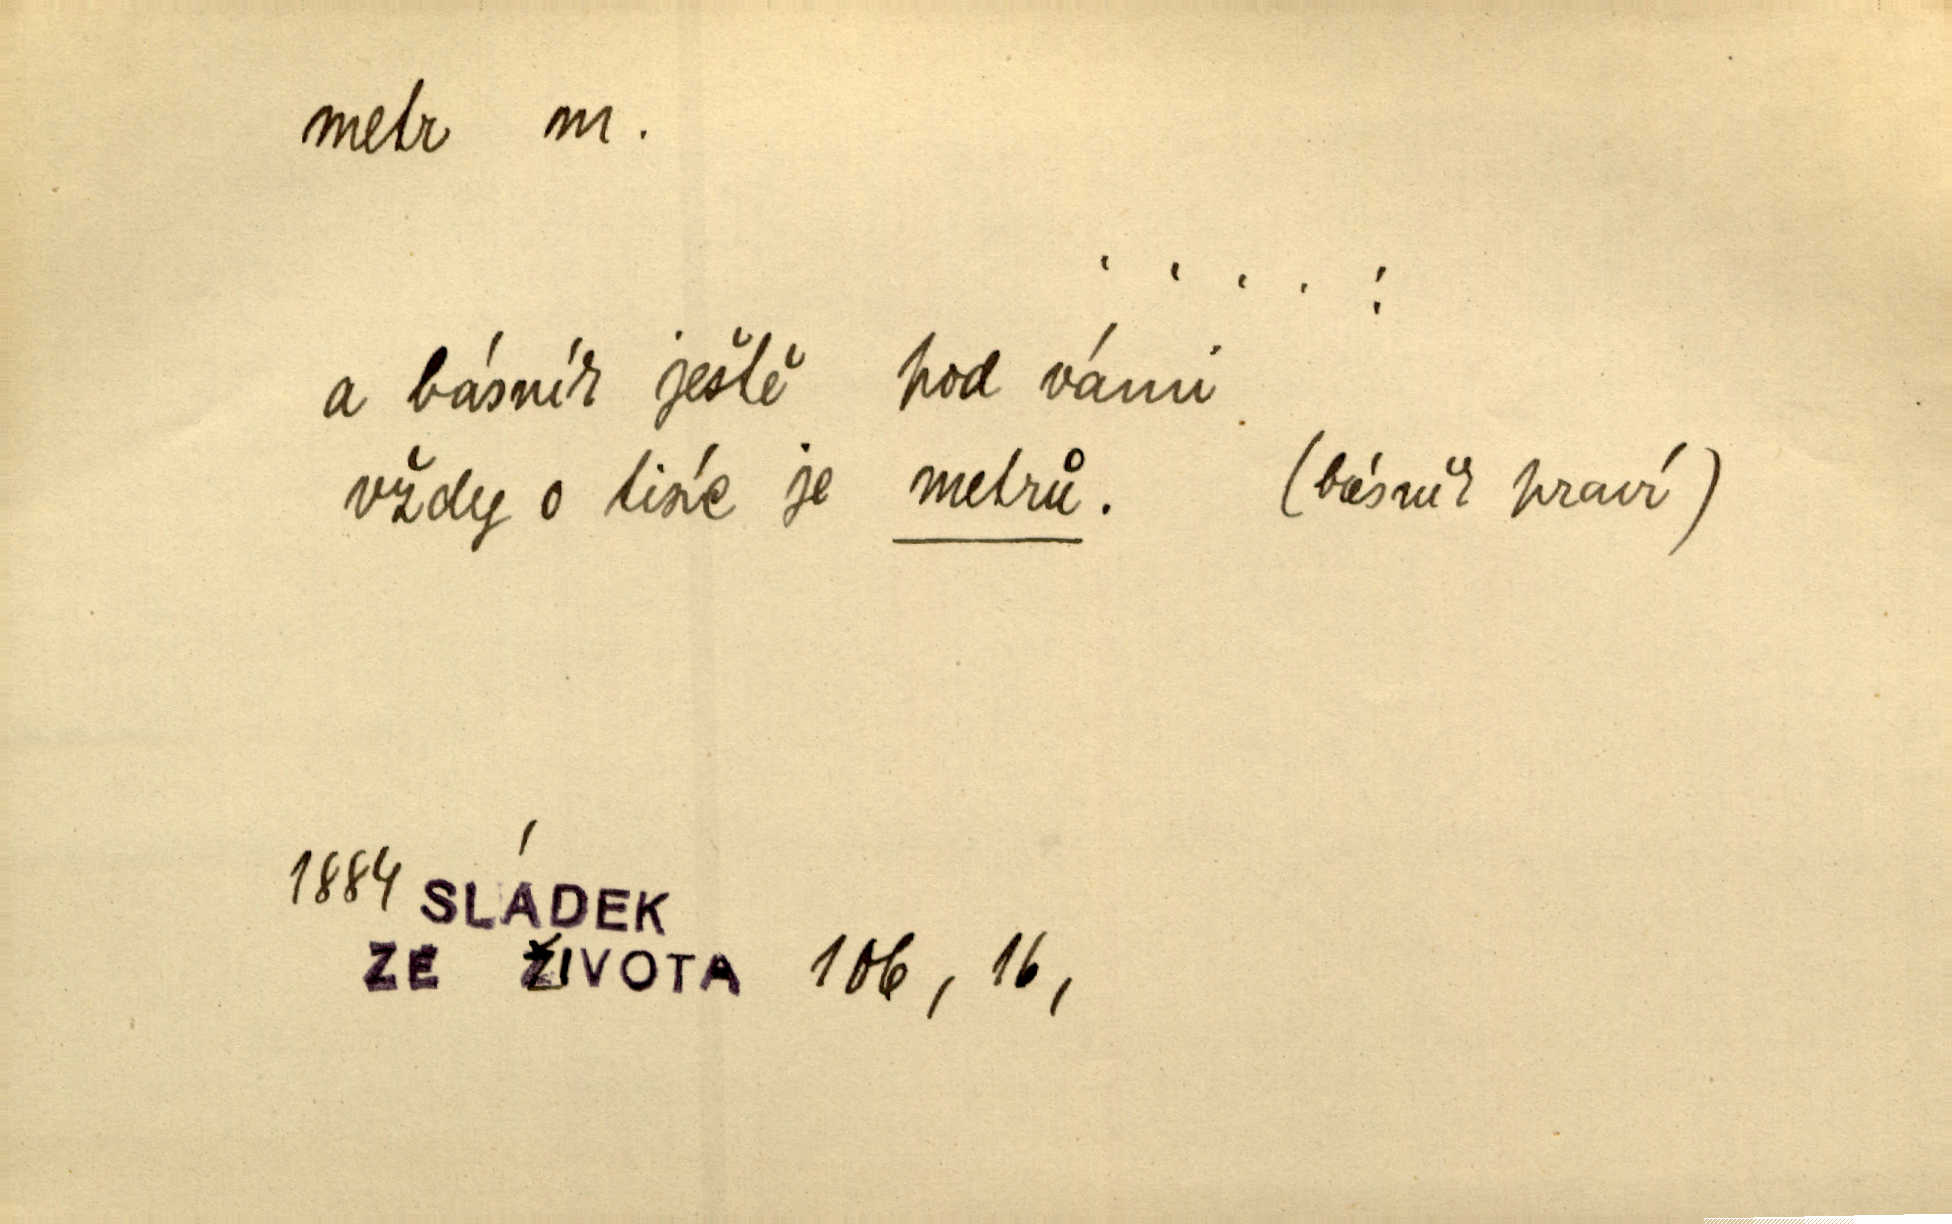 metr m.
. . . . !
a básník ještě pod vámi
vždy o tisíc je metrů. (básník praví)
1884 SLÁDEK
ZE ŽIVOTA 106, 16,